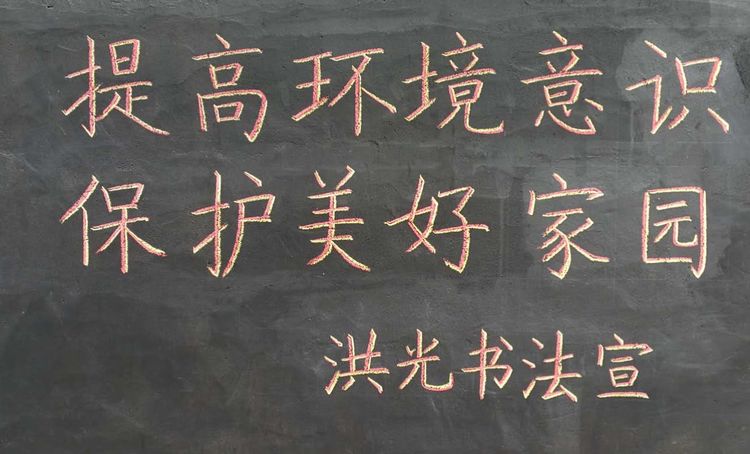 提高环境意识
保护美好家园
洪光书法宣